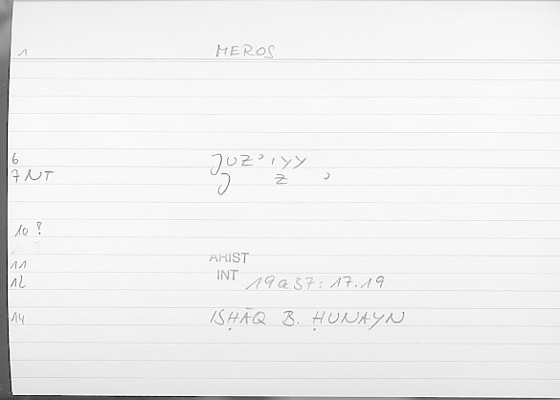 1 MEROS
6 JUZ'IYY
7 NT J Z '
10 !
11 ARIST
12 INT 19a37: 17.19
14 ISḤĀQ B. ḤUNAYN